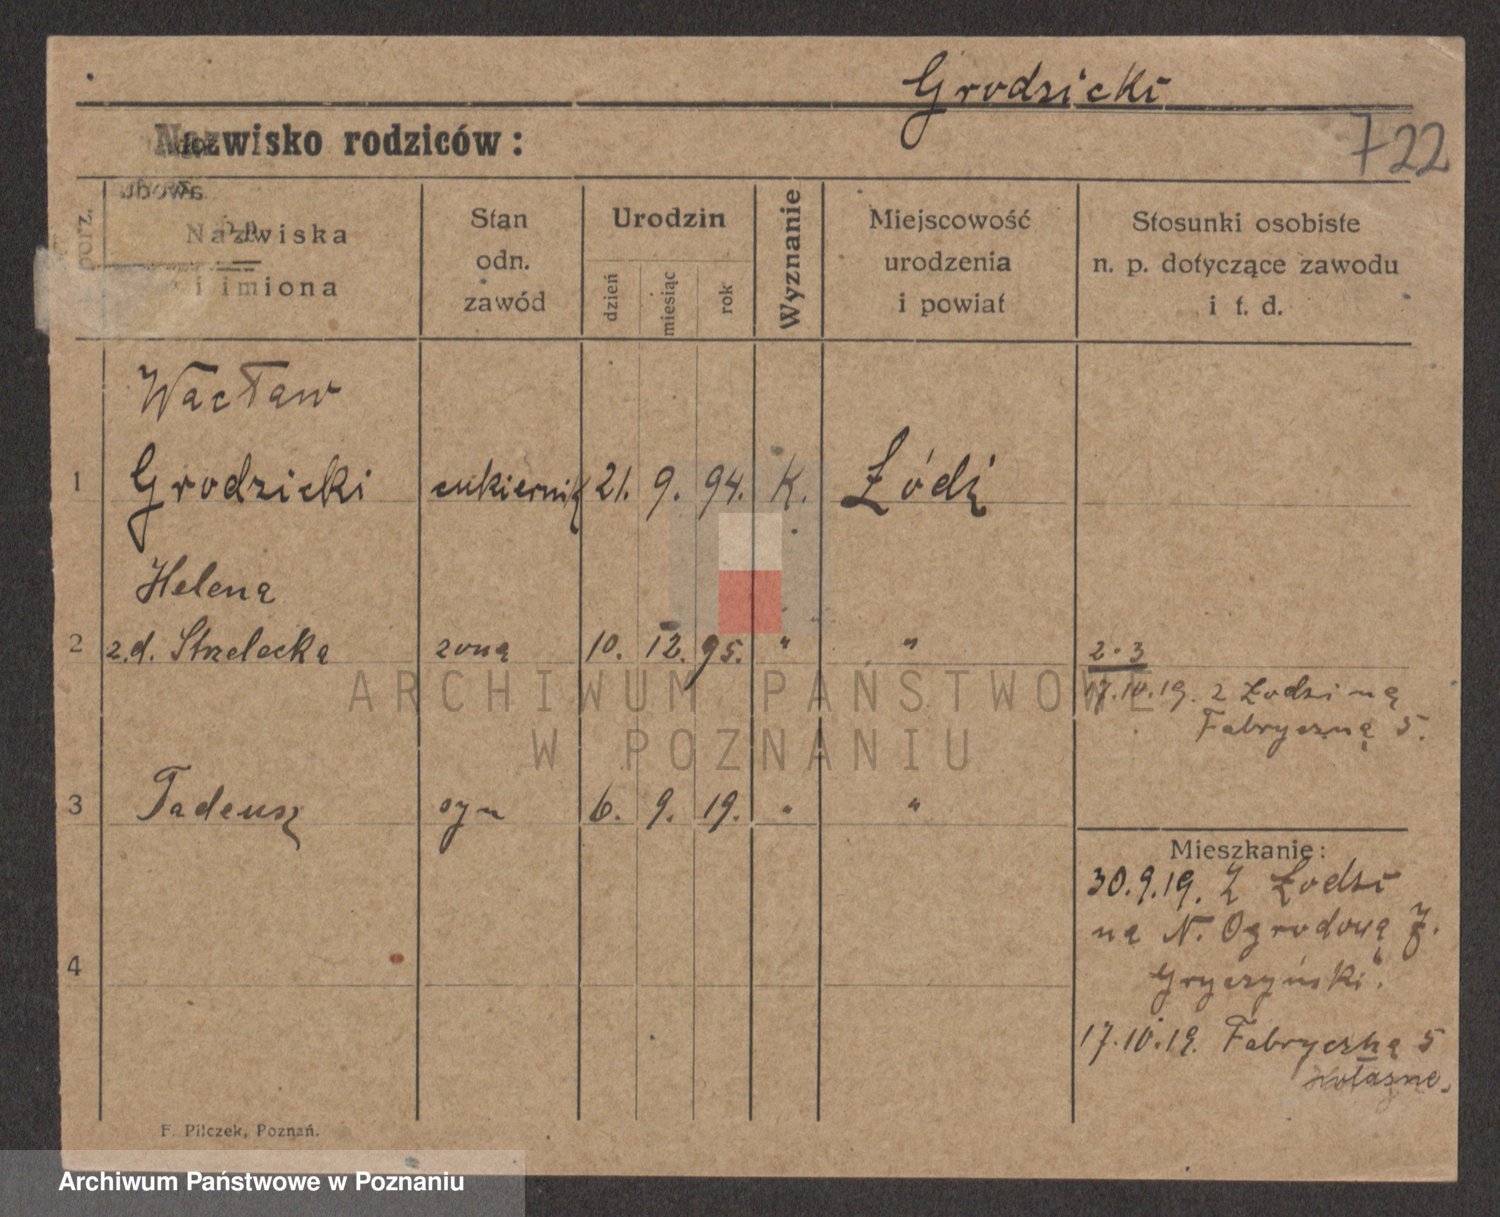 Grodzicki
Nazwisko rodziców:
722
porz.
Nazwiska
i imiona
Stan
odn.
zawód
Urodzin
dzień
miesiąc
rok
Wyznanie
Miejscowość
urodzenia
i powiat
Stosunki osobiste
n. p. dotyczące zawodu
i t. d.
Wacław
1 Grodzicki cukiernik 21. 9. 94. K. Łódź
Helena
2 z.d. Strzelecka żona 10. 12. 95. " "
2.3
17.10.19. z Łodzi na
Fabryczną 5.
3 Tadeusz syn 6. 9. 19. " "
Mieszkanie:
30.9.19. Z Łodzi
na N. Ogrodową
Gryczyński.
4
17.10.19. Fabryczna 5
F. Pilczek, Poznań.
ARCHIWUM PAŃSTWOWE
W POZNANIU
Archiwum Państwowe w Poznaniu